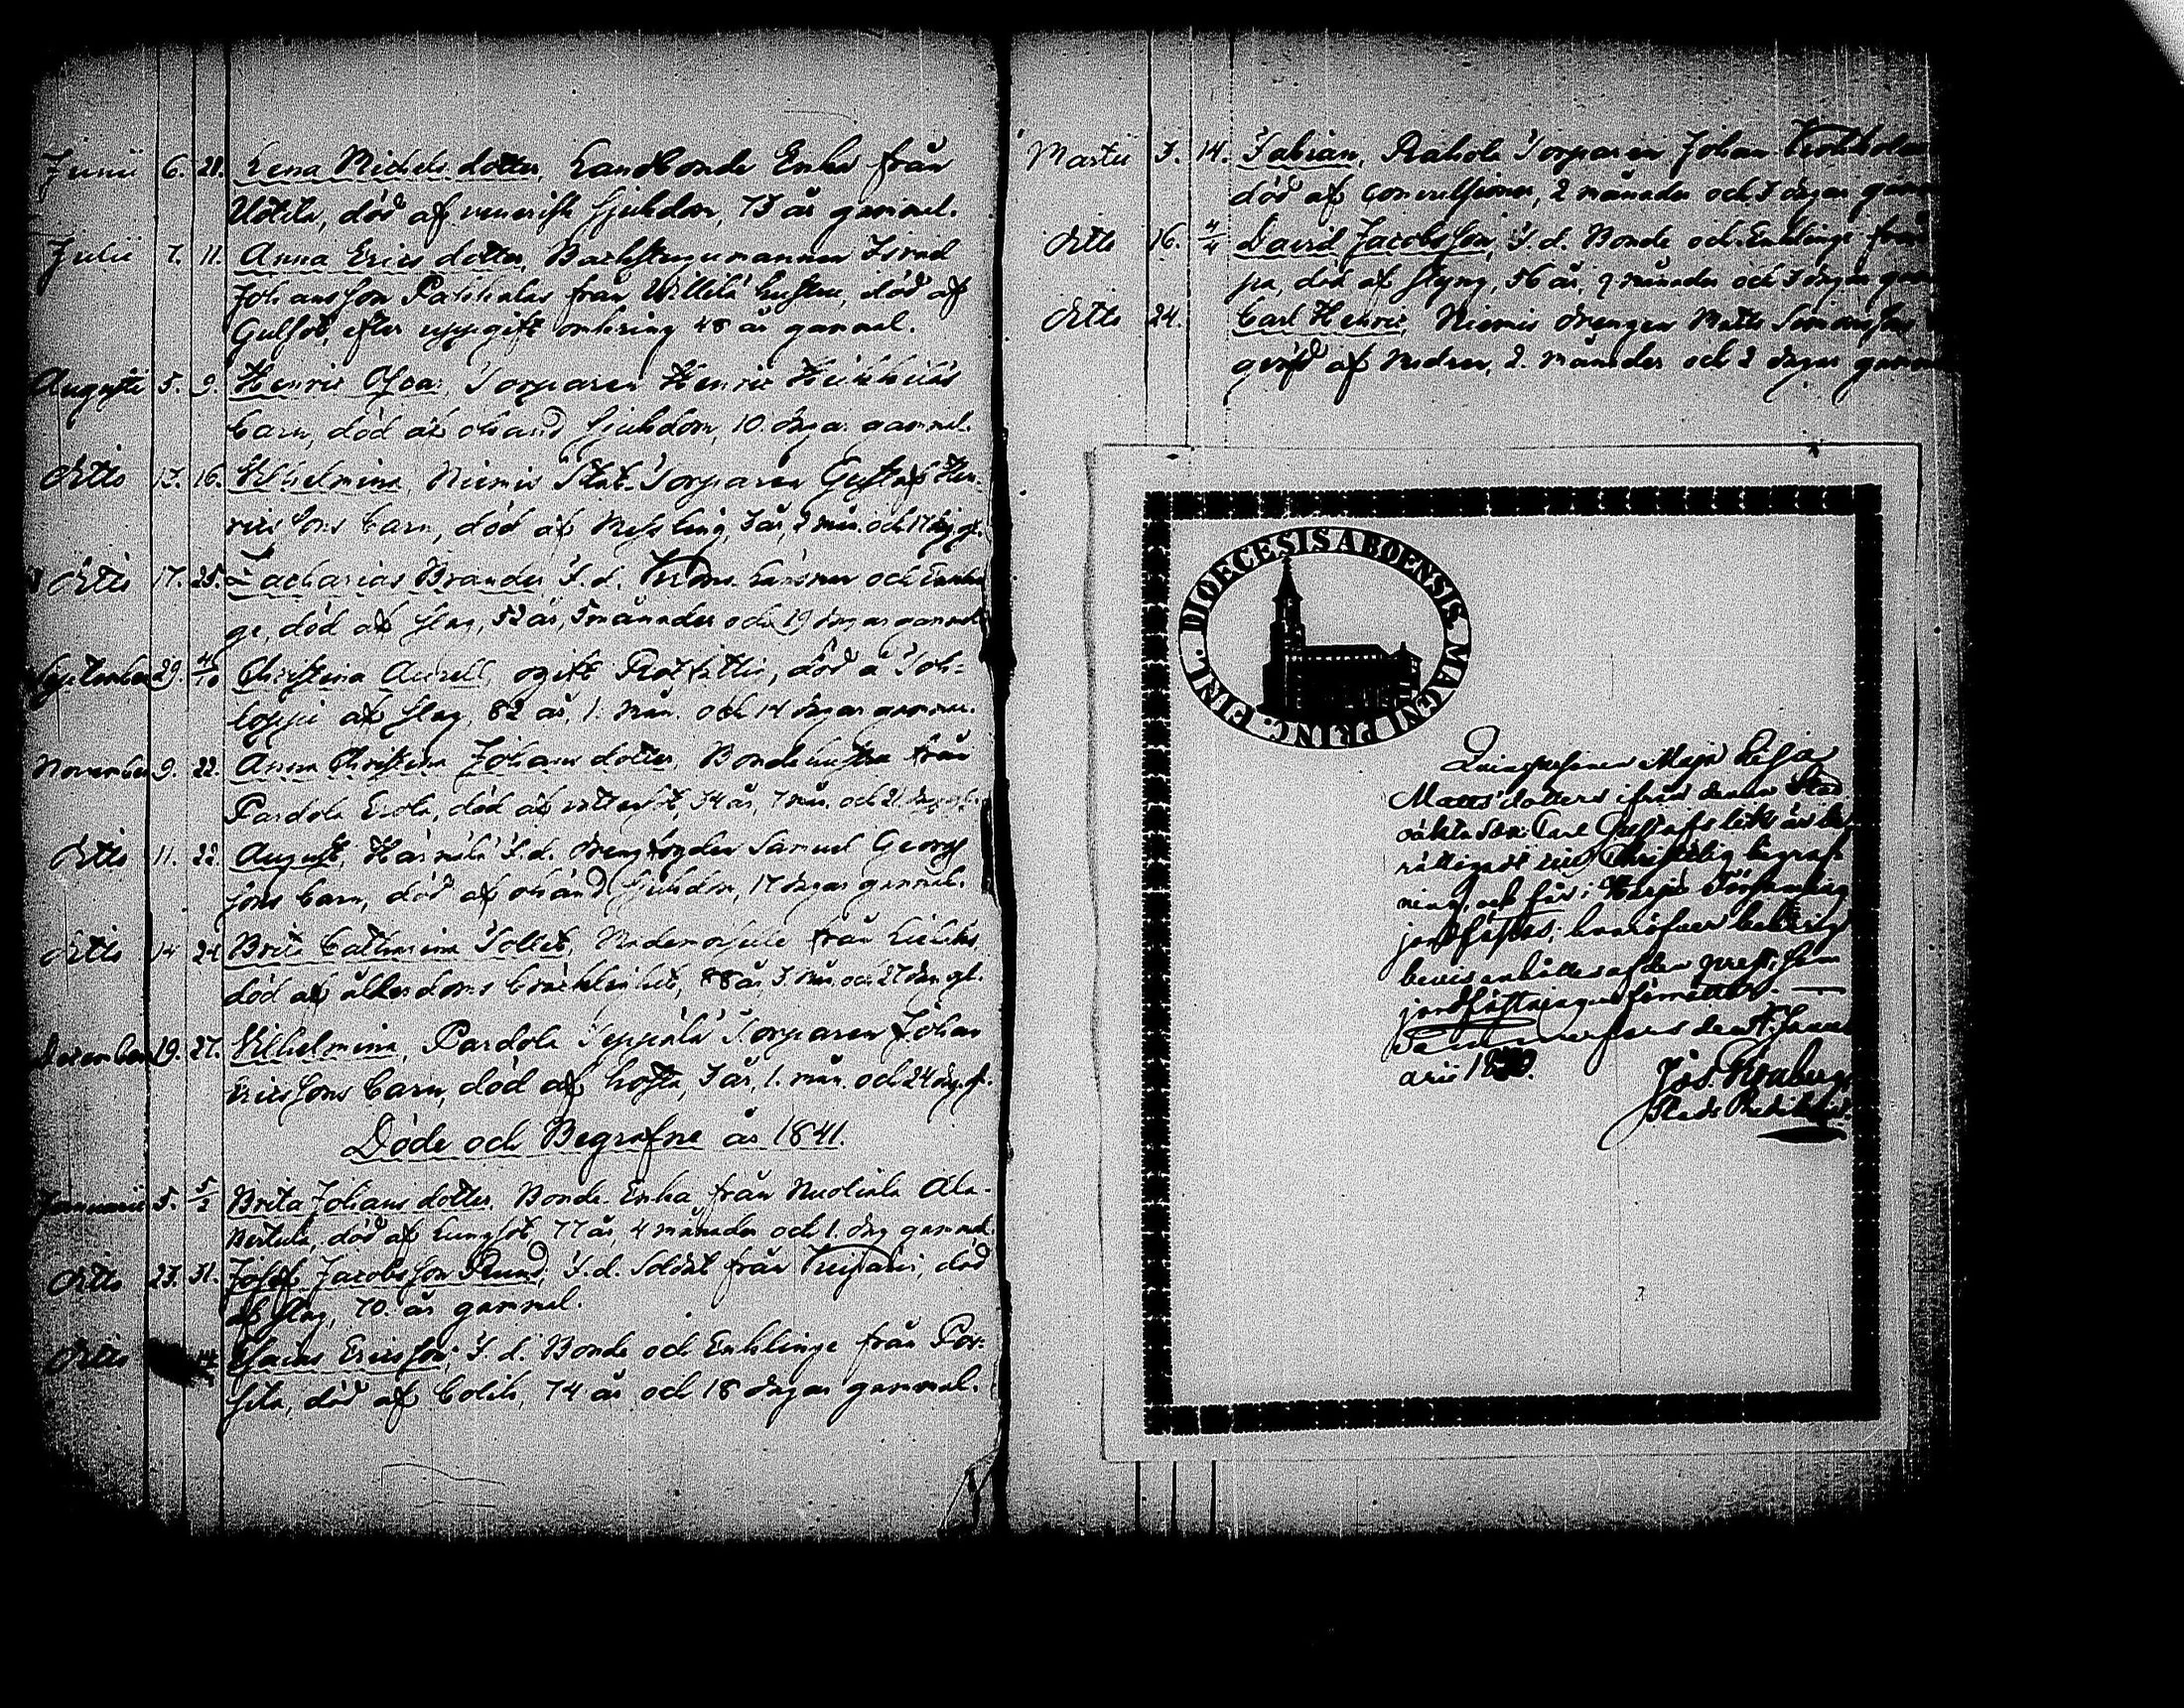 Junii 6. 28. Lena Michels dotter, Landbonde Enka från
Uotila, död af venerisk sjukdom, 73 år gammal.
Julii 7. 11. Anna Erics dotter, Backstugumannen Israel
Johansson Pakkalas från Willilä hustru, död af
Gulsot, efter uppgift omkring 48 år gammal.
Augusti 5. 9. Henric Oscar, Torparen Henric Heikkiläs
barn, död af okänd sjukdom, 10 dagar gammal.
Ditto 13. 16. Wilhelmina, Niemis Stat-Torparen Gustaf Hen-
rics sons barn, död af Messling, 3 år, 9 mån. och 17 dag. gl.
Ditto 17. 25. Zacharias Brander F.d. Krono Länsman och Enklin
ge, död af slag, 52 år, 5 månader och 19 dagar gammal
September 29. 4/10 Christina Aurell, ogift, död å
af slag, 82 år, 1. mån. och 14 dagar gammal.
November 9. 22. Anna Christina Johans dotter, Bondehustru från
Pardola Erola, död af, 34 år, 7 mån. och 21 dag. gl.
Ditto 11. 22. August, Härmälä F.d. Samuel Georgs
sons barn, död af okänd sjukdom, 17 dagar gammal.
Ditto 14 24 Brita Catharina Tollet, Mademoiselle från
död af ålderdoms bräcklighet, 88 år 3. mån och 27 dag. gl.
December 19. 27. Wilhelmina, Pardola Seppälä Torparen Johan
Erics sons barn, död af hosta, 3 år, 1. mån. och 24 dag. gl.
Döde och Begrafne år 1841.
Januarii 5. 5/2 Brita Johans dotter, Bonde-Enka från Nuoliala Ala-
död af Lungsot, 77 år, 4 månader och 1. dag gammal.
Ditto 23. 31. Josef Jacobs son, F.d. Soldat från, död
af slag, 70. år gammal.
Ditto Esaias Ericsson, F.d. Bonde och Enklinge från
död af Colik, 74 år och 18 dagar gammal.
Martii 3. 14. Fabian, Torparen Johan
död af Convulsioner, 2 månader och 3 dagar gam
Ditto 16. 4/4 David Jacobsson, F.d. Bonde och Enklinge från
död af styng, 56 år, 9 månader och 3 dagar gam
Ditto 24. Carl Henric, Niemis drengen Matts Simonssons
af modren, 2. månader och 2 dagar gamm
DIOECESIS ABOENSIS. MAGNI PRINC. FINL.
Maja Lisa
Matts dotters ifrån denna Stad
oäkta Son Carl Gustafs lik är be-
rättigadt till Christelig begraf-
ning, och får i Församling
jordfästas; hvaröfver
bevis erhålles af den prest, som
jordfästningen förrättar. —
den 1. Janu
arii
Jos.
Stads